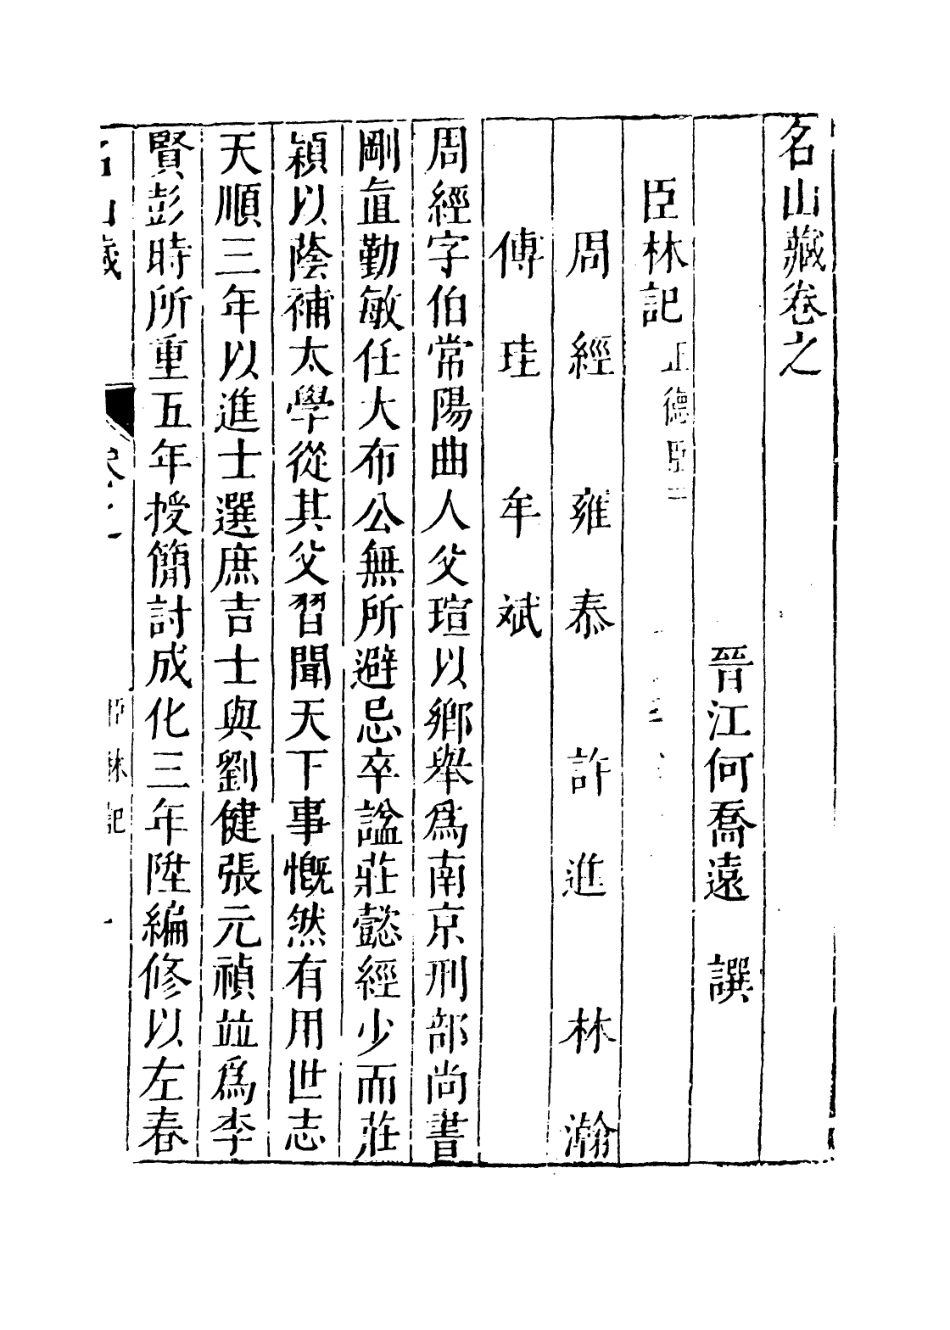 名山藏卷之
晉江何喬遠　譔
臣林記 正德臣二
周經　雍泰　許進　林瀚
傅珪　牟斌
周經字伯常陽曲人父瑄以鄉舉爲南京刑部尚書
剛直勤敏任大布公無所避忌卒諡莊懿經少而莊
穎以蔭補太學從其父習聞天下事慨然有用世志
天順三年以進士選庶吉士與劉健張元禎並爲李
賢彭時所重五年授簡討成化三年陞編修以左春
名山藏　臣林記